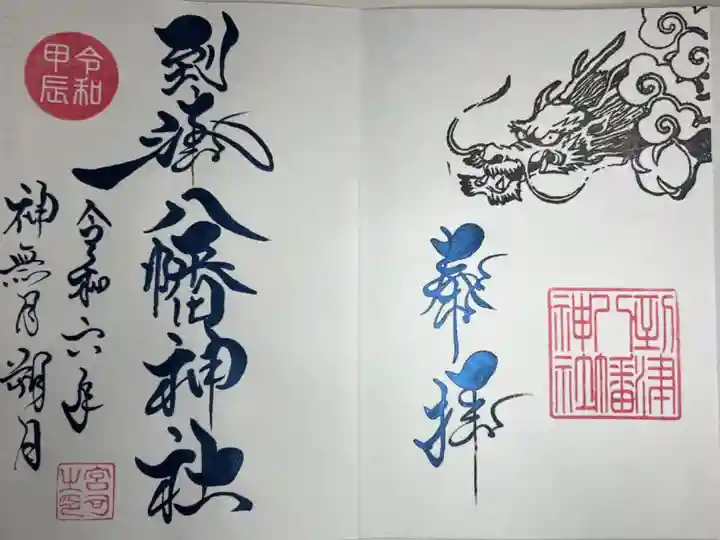 奉拝
到津
八幡
神社
到津八幡神社
令和六年
神無月朔月
令和
甲辰